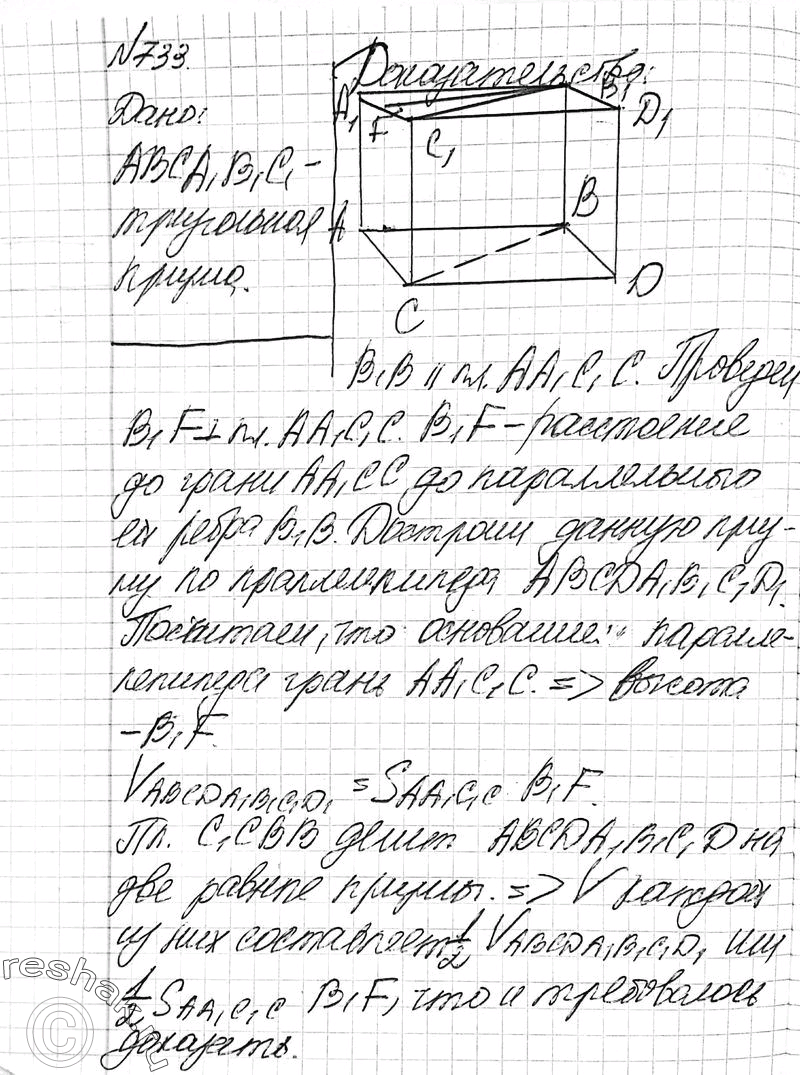 №733.
Доказательство:
Дано:
ABCA₁B₁C₁ –
треугольная
призма.
A₁ F C₁ B₁ D₁
A B
C D
B₁B ıı пл. AA₁C₁C. Проведем
B₁F ⊥ пл. AA₁C₁C. B₁F – расстояние
до грани AA₁CC до параллельного
ей ребра B₁B. Достроим данную приз-
му по праллелепипеда ABCDA₁B₁C₁D₁.
Посчитаем, что основание паралле-
лепипеда грань AA₁C₁C. => высота
– B₁F.
V ABCDA₁B₁C₁D₁ = S AA₁C₁C B₁F.
Пл. C₁CBB делит ABCDA₁B₁C₁D на
две равные призмы. => V каждой
из них составляет 1/2 V ABCDA₁B₁C₁D₁ или
1/2 S AA₁C₁C B₁F, что и требовалось
доказать.
reshak.ru
©